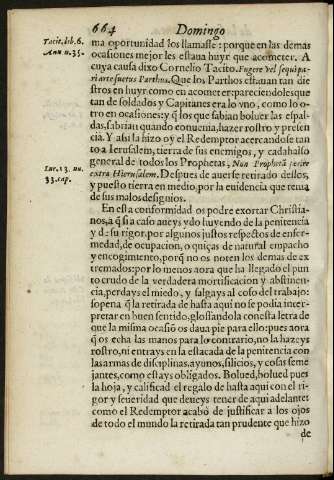 664 Domingo
Tacit. lib. 6.
Ann n. 35.
ma oportunidad los llamasse: porque en las demas
ocasiones mejor les estaua huyr que acometer. A
cuya causa dixo Cornelio Tacito. Fugere vel sequi pa-
ri arte suetus Parthus. Que los Parthos estauan tan die
stros en huyr como en acometer: pareciendoles que
tan de soldados y Capitanes era lo vno, como lo o-
tro en ocasiones: y q̃ los que sabian boluer las espal-
das, sabrian quando conuenia, hazer rostro y presen
cia. Y assi la hizo oy el Redemptor acercandose tan
to a Ierusalem, tierra de sus enemigos, y cadahalso
general de todos los Prophetas, Non Prophetã perire
Luc. 13. nu.
33. cap.
extra Hierusalem. Despues de auerse retirado dellos,
y puesto tierra en medio, por la euidencia que tenia
de sus malos designios.
En esta conformidad os podre exortar Christia-
nos, a q̃ si a caso aueys ydo huyendo de la penitencia
y de su rigor, por algunos justos respectos de enfer-
medad, de ocupacion, o quiças de natural empacho
y encogimiento, porq̃ no os noten los demas de ex
tremados: por lo menos aora que ha llegado el pun
to crudo de la verdadera mortificacion y abstinen-
cia, perdays el miedo, y salgays al coso del trabajo:
sopena q̃ la retirada de hasta aqui no se podia inter-
pretar en buen sentido, glossandola con esta letra de
que la misma ocasiõ os daua pie para ello: pues aora
q̃ os echa las manos para lo contrario, no la hazeys
rostro, ni entrays en la estacada de la penitencia con
las armas de disciplinas, ayunos, silicios, y cosas seme
jantes, como estays obligados. Bolued, bolued pues
la hoja, y calificad el regalo de hasta aqui con el ri-
gor y seueridad que deueys tener de aqui adelante:
como el Redemptor acabò de justificar a los ojos
de todo el mundo la retirada tan prudente que hizo
de